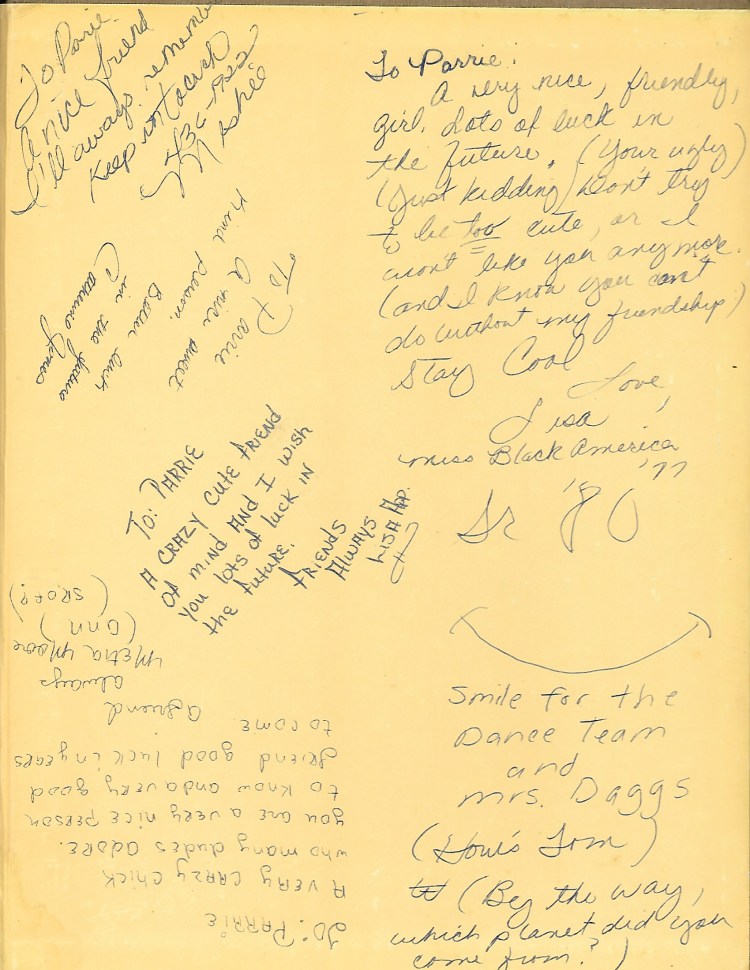 To Parrie
A nice friend
I'll aways remember
keep in tocuch
436-1922
Meshell
To Parrie.
A very nice, friendly,
girl. Lots of luck in
the future. (Your ugly)
(Just kidding) Don't try
to be too cute, or I
won't like you anymore.
(and I know you can't
do without my friendship)
Stay Cool
Love,
Lisa
Miss Black America
'77
Sr '80
Smile for the
Dance Team
and
Mrs. Daggs
(How's Tom)
(By the way,
which planet did you
come from?)
To Parrie
A nice sweet
kind person.
Best luck
in the future
Jones
To: PARRIE
A CRAZY CUTE FRIEND
OF MIND AND I WISH
YOU lOTS OF lUCK IN
the future.
FRIENDS
AlWAYS
LISA
TO: PARRIE
A VERY CRAZY CHICK
who many dudes adore.
you are a very nice person
to know and a very good
friend good luck in years
to come
a friend
always
Metra Moore
(Ann)